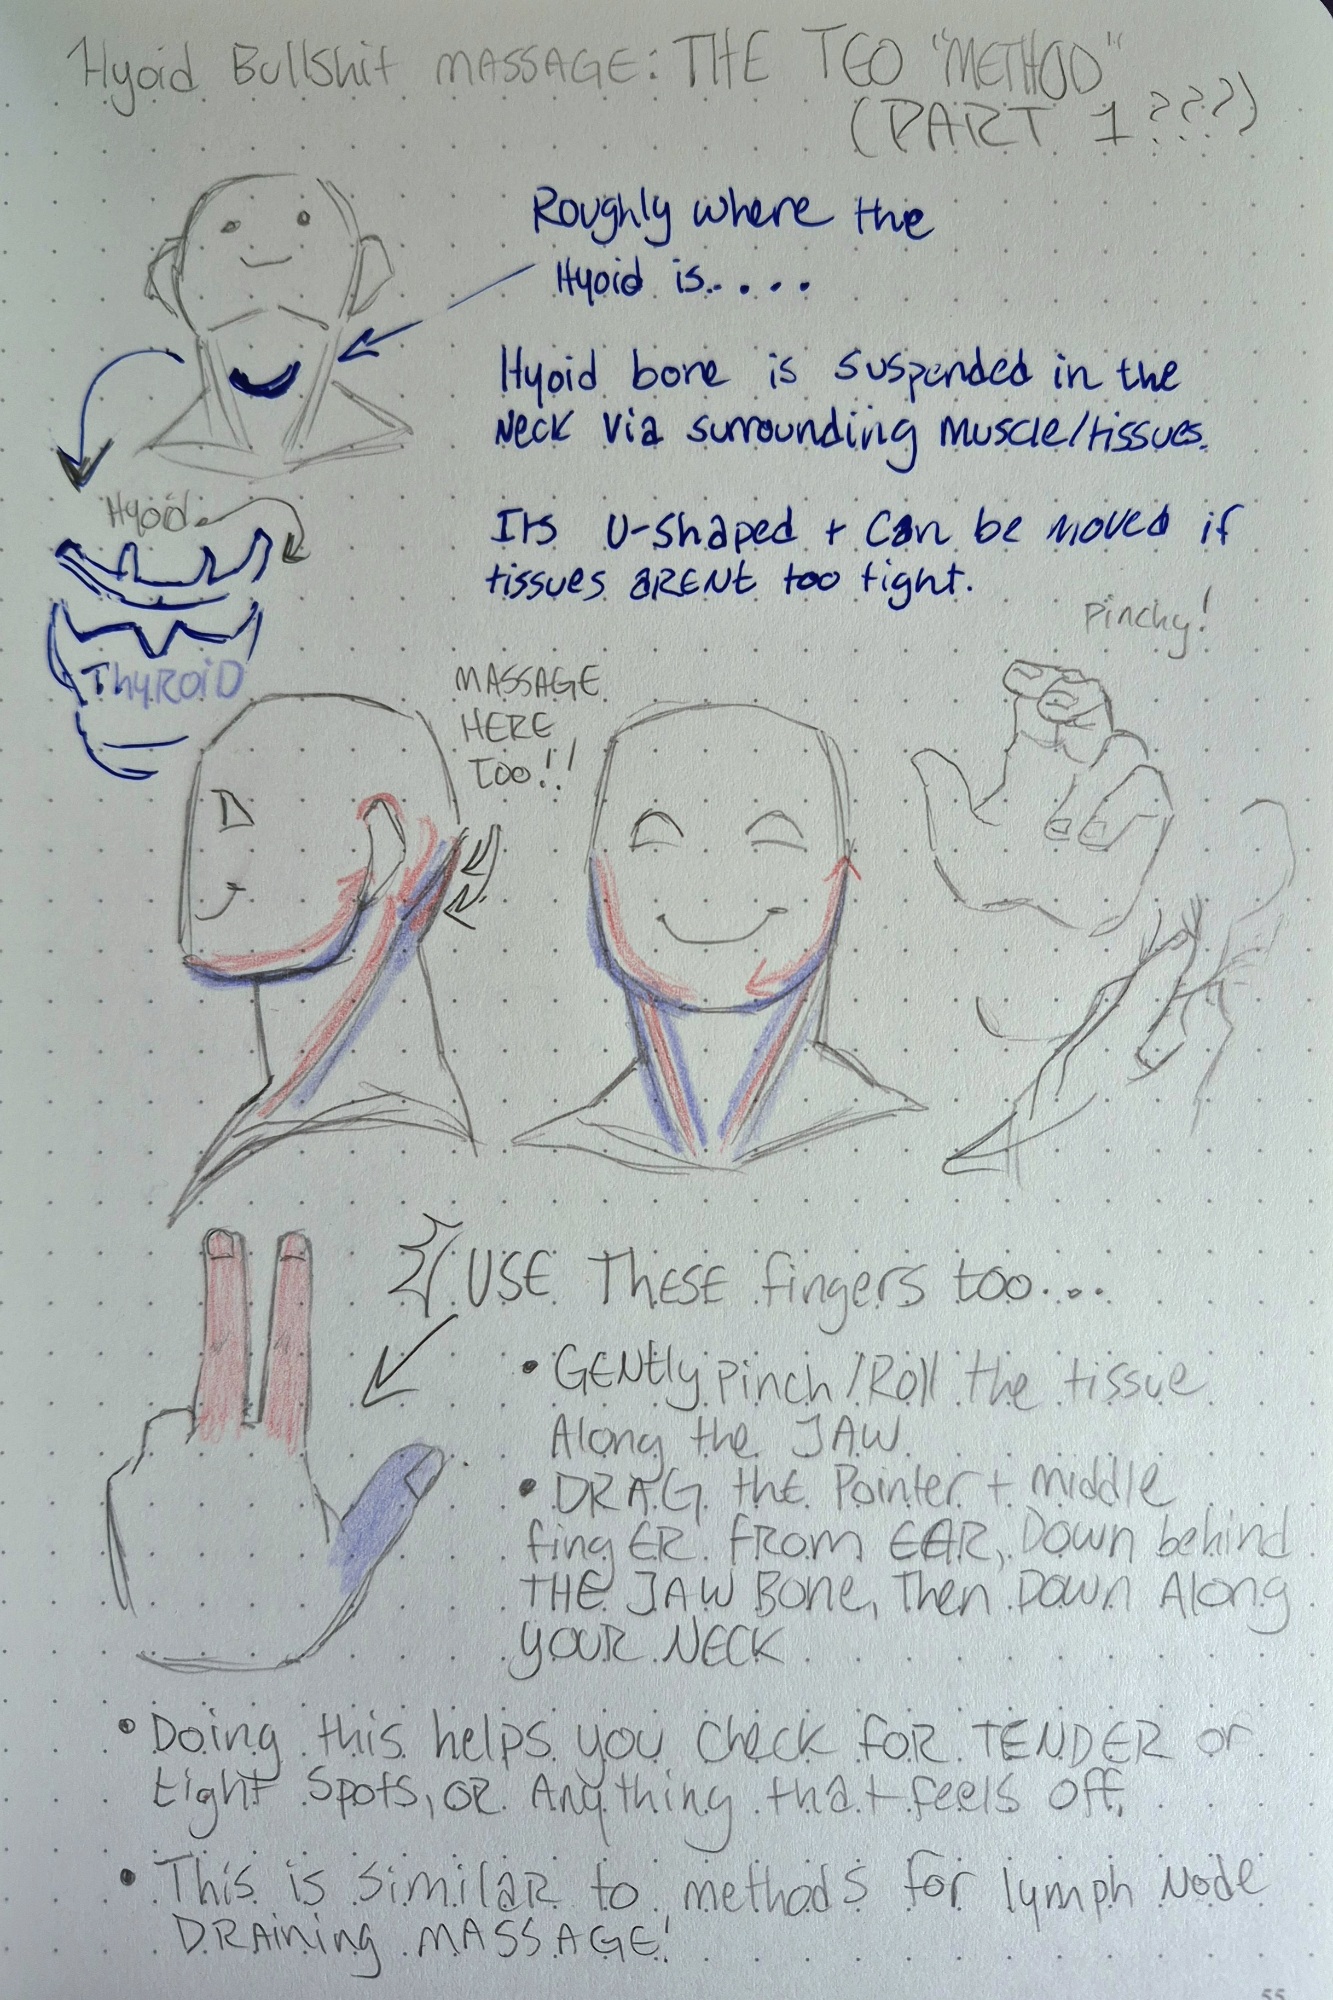 Hyoid Bullshit MASSAGE: THE TEO "METHOD"
(PART 1???)
Roughly where the
Hyoid is.....
Hyoid bone is suspended in the
Neck via surrounding muscle/tissues.
Its U-shaped + can be moved if
tissues ARENt too tight.
Hyoid
ThyROiD
Pinchy!
MASSAGE
HERE
TOO!!
USE THESE fingers too...
• GENtly pinch/Roll the tissue
Along the JAW.
• DRAG the Pointer + middle
fingER from EAR, Down behind
THE JAW Bone, Then Down Along
YOUR NECK
• Doing this helps you check foR TENDER or
tight spots, OR Anything that feels off.
• This is similaR to methods for lymph Node
DRAining MASSAGE!
55